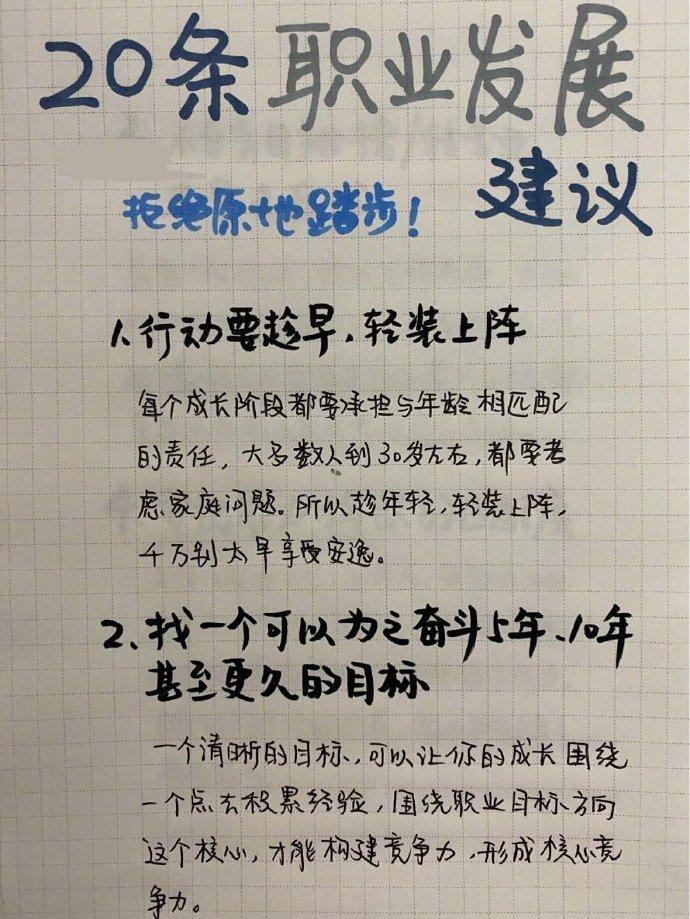 20条职业发展
建议
拒绝原地踏步！
1.行动要趁早、轻装上阵
每个成长阶段都要承担与年龄相匹配
的责任，大多数人到30岁左右，都要考
虑家庭问题。所以趁年轻，轻装上阵，
千万别太早享受安逸。
2、找一个可以为之奋斗5年、10年
甚至更久的目标
一个清晰的目标，可以让你的成长围绕
一个点去积累经验，围绕职业目标方向
这个核心，才能构建竞争力，形成核心竞
争力。